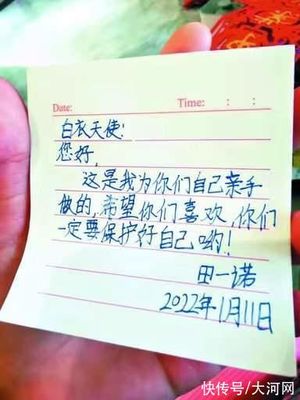 Date: Time: : :
白衣天使:
您好,
这是我为你们自己亲手
做的,希望你们喜欢,你们
一定要保护好自己哟!
田一诺
2022年1月11日
快传号/大河网